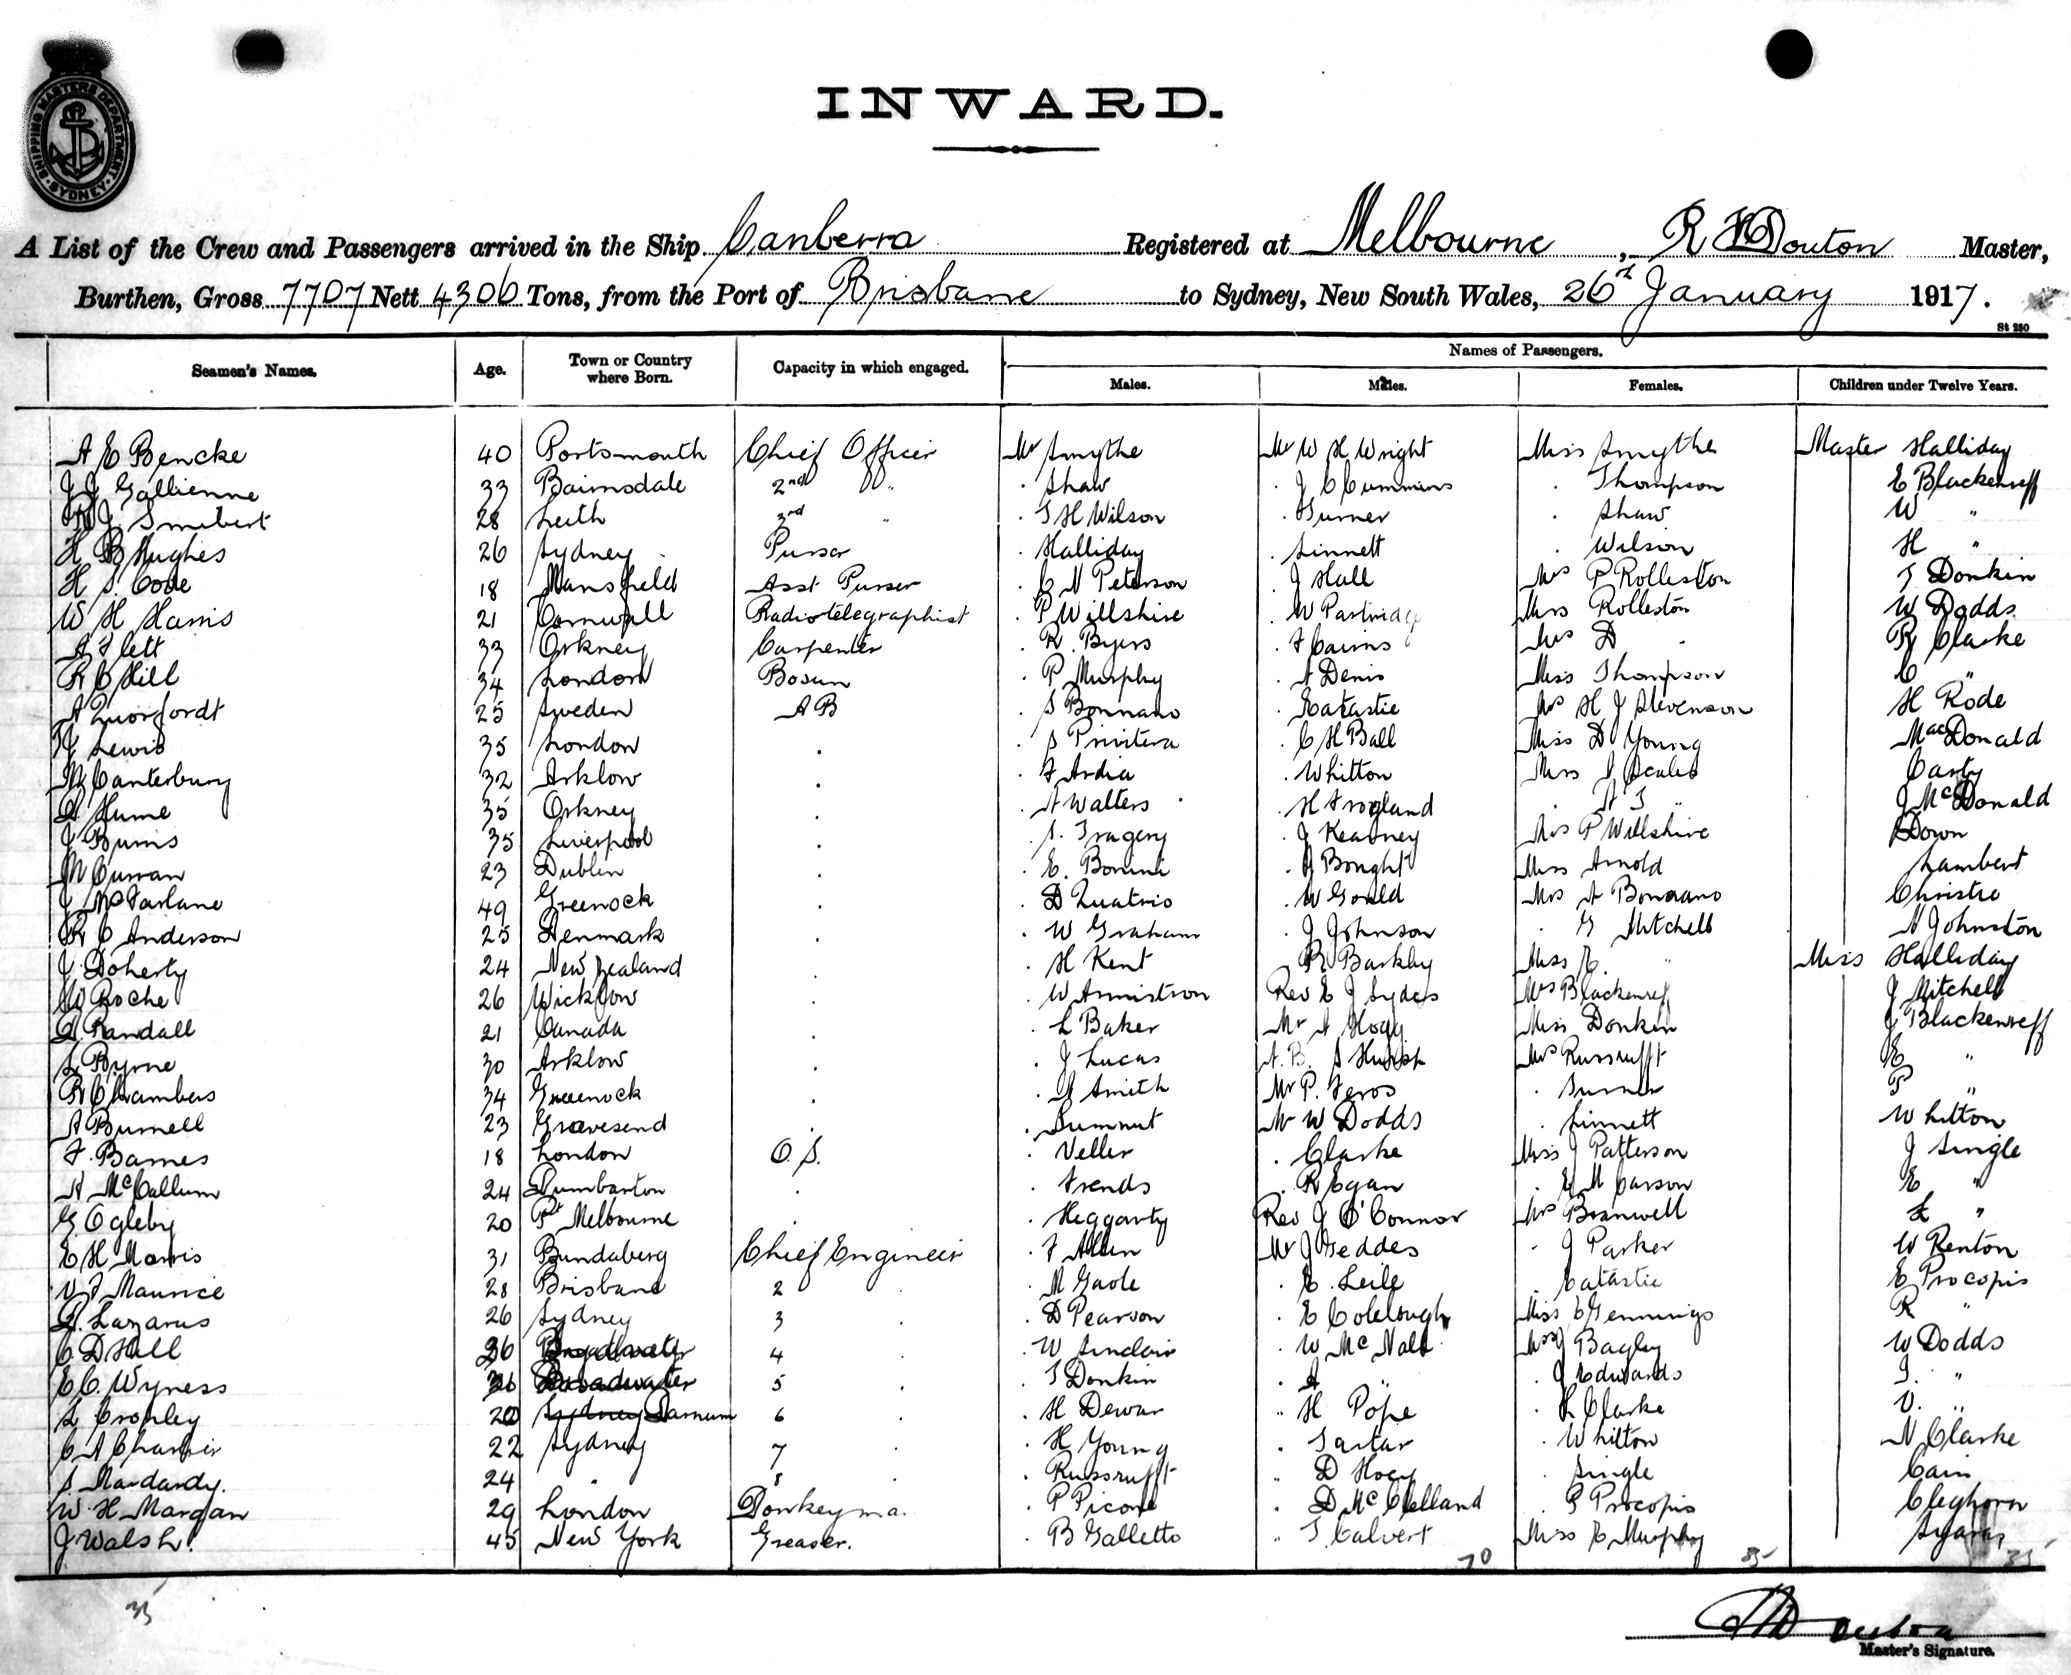 SHIPPING MASTERS DEPARTMENT SYDNEY
INWARD.
A List of the Crew and Passengers arrived in the Ship Canberra Registered at Melbourne, R H Douton Master,
Burthen, Gross 7707 Nett 4306 Tons, from the Port of Brisbane to Sydney, New South Wales, 26th January 1917.
St 250
Names of Passengers.
Seamen's Names. Age. Town or Country where Born. Capacity in which engaged. Males. Males. Females. Children under Twelve Years.
A E Bencke 40 Portsmouth Chief Officer Mr Smythe Mr W H Wright Miss Smythe Master Halliday
J J Gallienne 33 Bairnsdale 2nd " . Shaw . J C Cummins . Thompson E Blackenreff
R J Smibert 28 Leith 3rd " . T H Wilson . Turner . Shaw W "
H B Hughes 26 Sydney Purser . Halliday . Linnett . Wilson H "
H S Code 18 Mansfield Asst Purser . C N Peterson . J Hall Mrs P Rolleston T Donkin
W H Harris 21 Cornwall Radiotelegraphist . P Willshire . W Partridge Miss Rolleston W Dodds
A Flett 33 Orkney Carpenter . R. Byers . F Cairns Mrs D " R Clarke
R C Hill 34 London Bosun . P Murphy . A Denis Miss Thompson C "
A 25 Sweden A B . S Bonnano . Eatastie Mrs H J Stevenson H Rode
J Lewis 35 London . . S Privitera . C H Ball Miss D Young MacDonald
M Canterbury 32 Arklow . . F Ardia . Whitton Miss J Scales Carty
A Hume 35 Orkney . . A Walters . H . A J " J McDonald
J Burns 35 Liverpool . . S. Tragery . J Kearney Mrs P Willshire Down
M Curran 23 Dublin . . E. Bonini . J Bought Miss Arnold Lambert
J McFarlane 49 Greenock . . D Quatrio . W Gould Mrs A Bonnano Christie
R C Anderson 25 Denmark . . W Graham . J Johnson . G Mitchell A Johnston
J Doherty 24 New Zealand . . H Kent . R Barkby Miss E. " Miss Halliday
W Roche 26 Wicklow . . W Armistron Rev E J Sydes Mrs Blackenreff J Mitchell
A Randall 21 Canada . . L Baker Mr A Hogg Miss Donkin J Blackenreff
L Byrne 30 Arklow . . J Lucas A. B. S Mrs Russrufft E "
R Chambers 34 Greenock . . A Smith Mr P. Feros . Turner P "
A Burnell 23 Gravesend . . Mr W Dodds . Linnett Whitton
F. Barnes 18 London O. S. . Veller . Clarke Miss J Patterson J Single
A McCallum 24 Dumbarton . . Frends . R Egan . E M Carson E "
G Ogleby 20 Pt Melbourne . . Heggarty Rev J O'Connor Mrs Bramwell L "
E H Morris 31 Bundaberg Chief Engineer . F Allen Mr J Geddes . J Parker W Renton
V F Maurice 28 Brisbane 2 . . M Gaole . E. Leile . Catastie E Procopis
A. Lazarus 26 Sydney 3 . . D Pearson . E Colclough Miss C Gennings R "
C D Hall 36 Broadwater 4 . . W Sinclair . W McNall Mrs J Bagley W Dodds
E C. Wyness 26 Broadwater 5 . . T Donkin . A " . J Edwards T. "
L Cropley 20 Sydney 6 . H Dewar " H Pope . L Clarke V. "
C A 22 Sydney 7 . . H Young . Tartar . Whitton N Clarke
S Mardardy. 24 " 8 . Russrufft " D Hoey . Single Cain
W. H. Margan 29 London Donkeyma. . P Picone . D McClelland . P Procopis Cleghorn
J Walsh. 45 New York Greaser. . B Galletto " T. Calvert Miss E Murphy
70 35 35
35
Master's Signature.